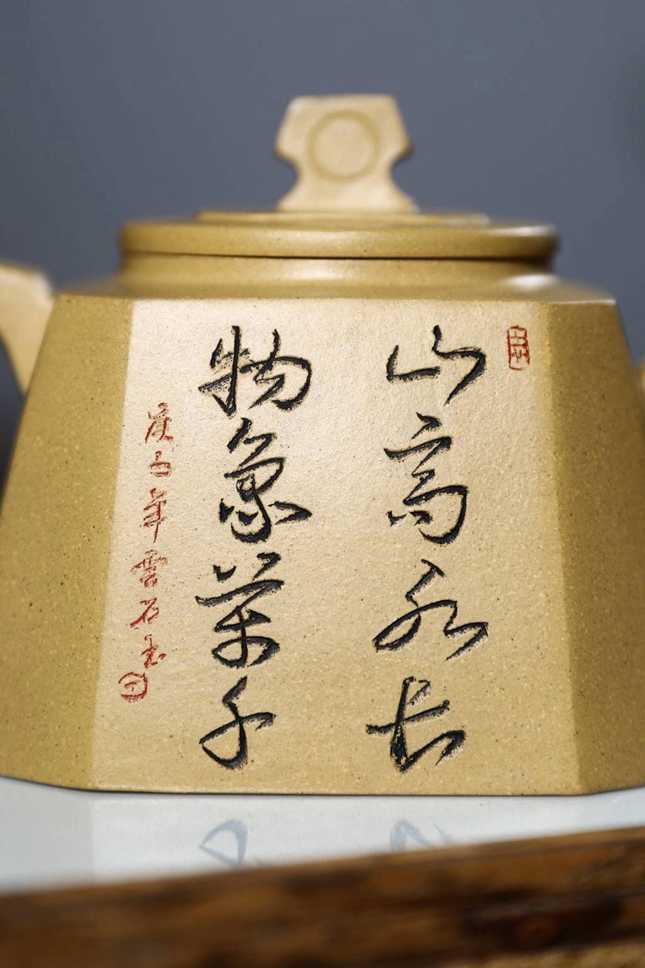 山高水长
物象万千
庚子年云石书